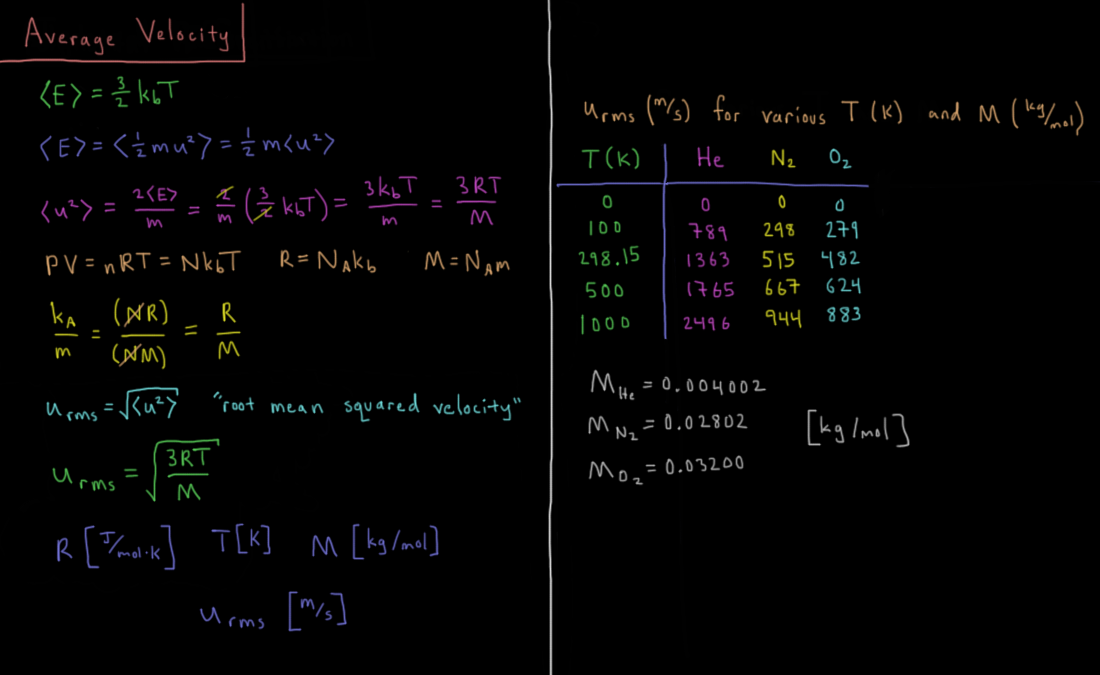 Average Velocity
⟨E⟩ = 3/2 k_bT
⟨E⟩ = ⟨1/2 mu²⟩ = 1/2 m⟨u²⟩
⟨u²⟩ = 2⟨E⟩/m = 2/m (3/2 k_bT) = 3k_bT/m = 3RT/M
PV = nRT = Nk_bT R = N_Ak_b M = N_Am
k_A/m = (NR)/(NM) = R/M
u_rms = √⟨u²⟩ "root mean squared velocity"
u_rms = √(3RT/M)
R [J/mol·K] T[K] M [kg/mol]
u_rms [m/s]
u_rms (m/s) for various T (K) and M (kg/mol)
T (K) He N₂ O₂
0 0 0 0
100 789 298 279
298.15 1363 515 482
500 1765 667 624
1000 2496 944 883
M_He = 0.004002
M_N₂ = 0.02802 [kg/mol]
M_O₂ = 0.03200